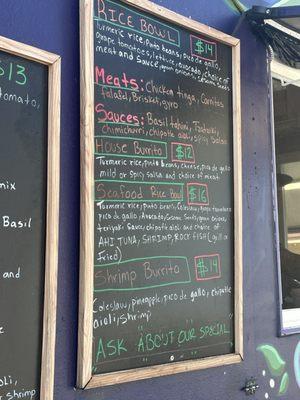 RICE BOWL $14
Turmeric rice, pinto beans, pico de gallo,
grape tomatoes, lettuce, avocado, choice of
meat and sauce, green onions, sesame seeds
Meats: Chicken tinga, Carnitas
falafel, Brisket, gyro
Sauces: Basil tahini, Tzatziki,
chimichurri, chipotle aioli, spicy Salsa
House Burrito $12
Turmeric rice, pinto beans, cheese, pico de gallo
mild or spicy salsa and choice of meat
Seafood Rice Bowl $16
Turmeric rice, pinto beans, Coleslaw, grape tomatoes
pico de gallo, Avocado, Sesame Seeds, green onions,
teriyaki sauce, chipotle aioli and choice of
AHI TUNA, SHRIMP, ROCK FISH (grill or
Fried)
Shrimp Burrito $14
Coleslaw, pineapple, pico de gallo, chipotle
aioli, shrimp
ASK ABOUT OUR SPECIAL
$13
tomato,
mix
Basil
and
oli,
or shrimp